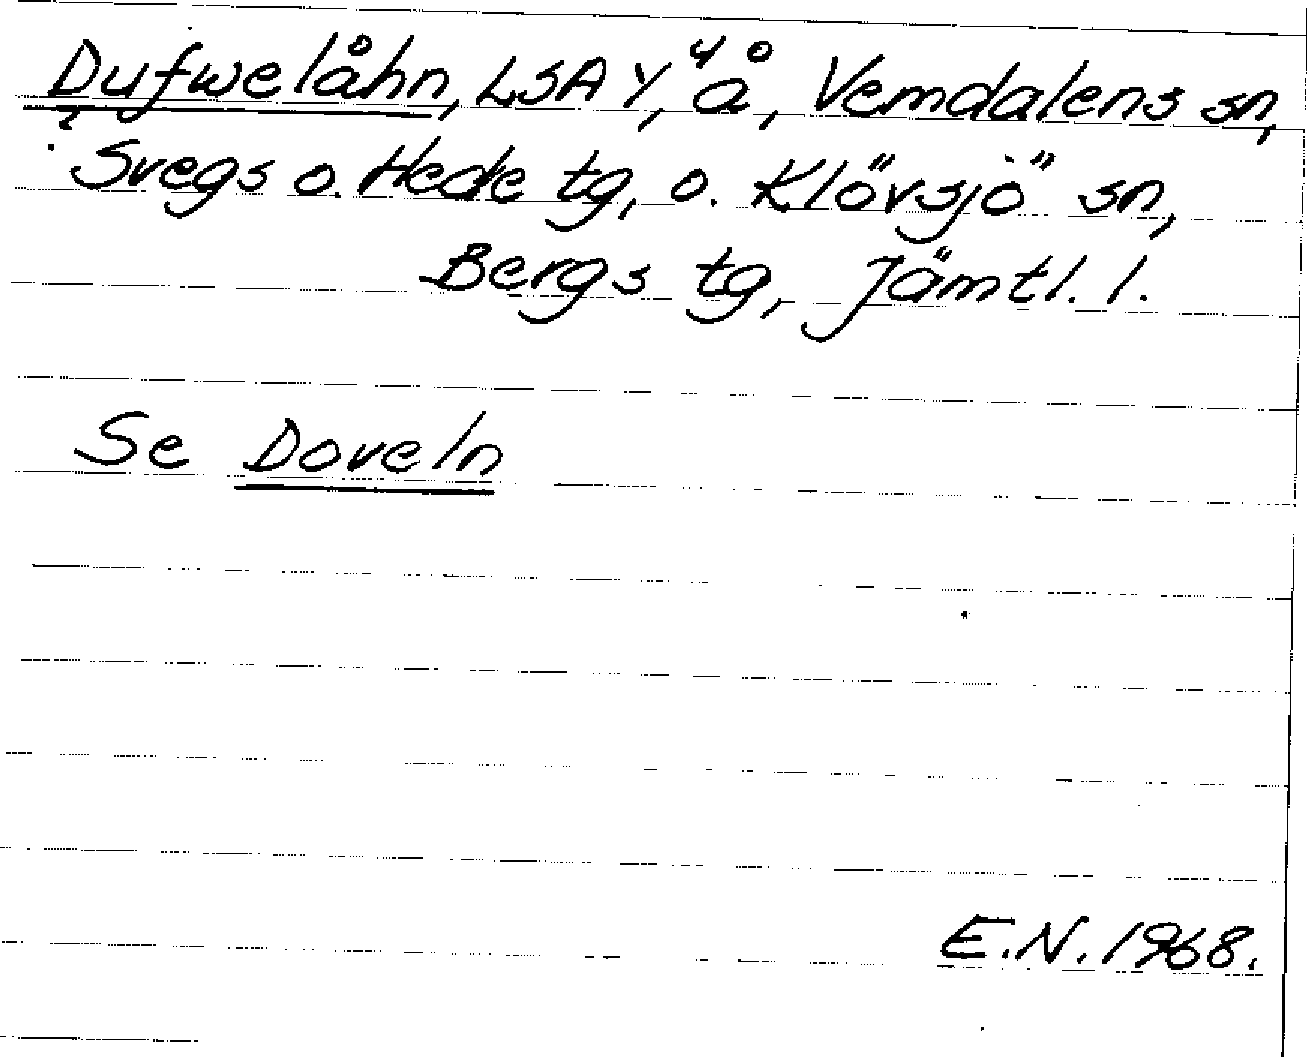 Dufwelåhn, LSA Y, "å, Vemdalens sn,
Svegs o. Hede tg, o. Klövsjö" sn,
Bergs tg, Jämtl. l.
Se Doveln
E.N. 1968.